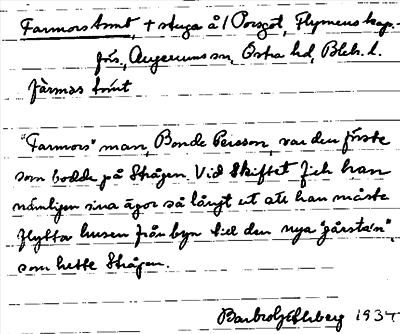 Farmors tomt, + stuga å / Porsgöl, Flymens kap.-
förs., Augerums sn, Östra hd, Blek. l.
färmɑs tɷmt
"Farmors" man, Bonde Persson, var den förste
som bodde på Strågen. Vid Skiftet fick han
nämligen sina ägor så långt ut att han måste
flytta husen från byn till den nya "gårsta'n",
som hette Strågen.
1937